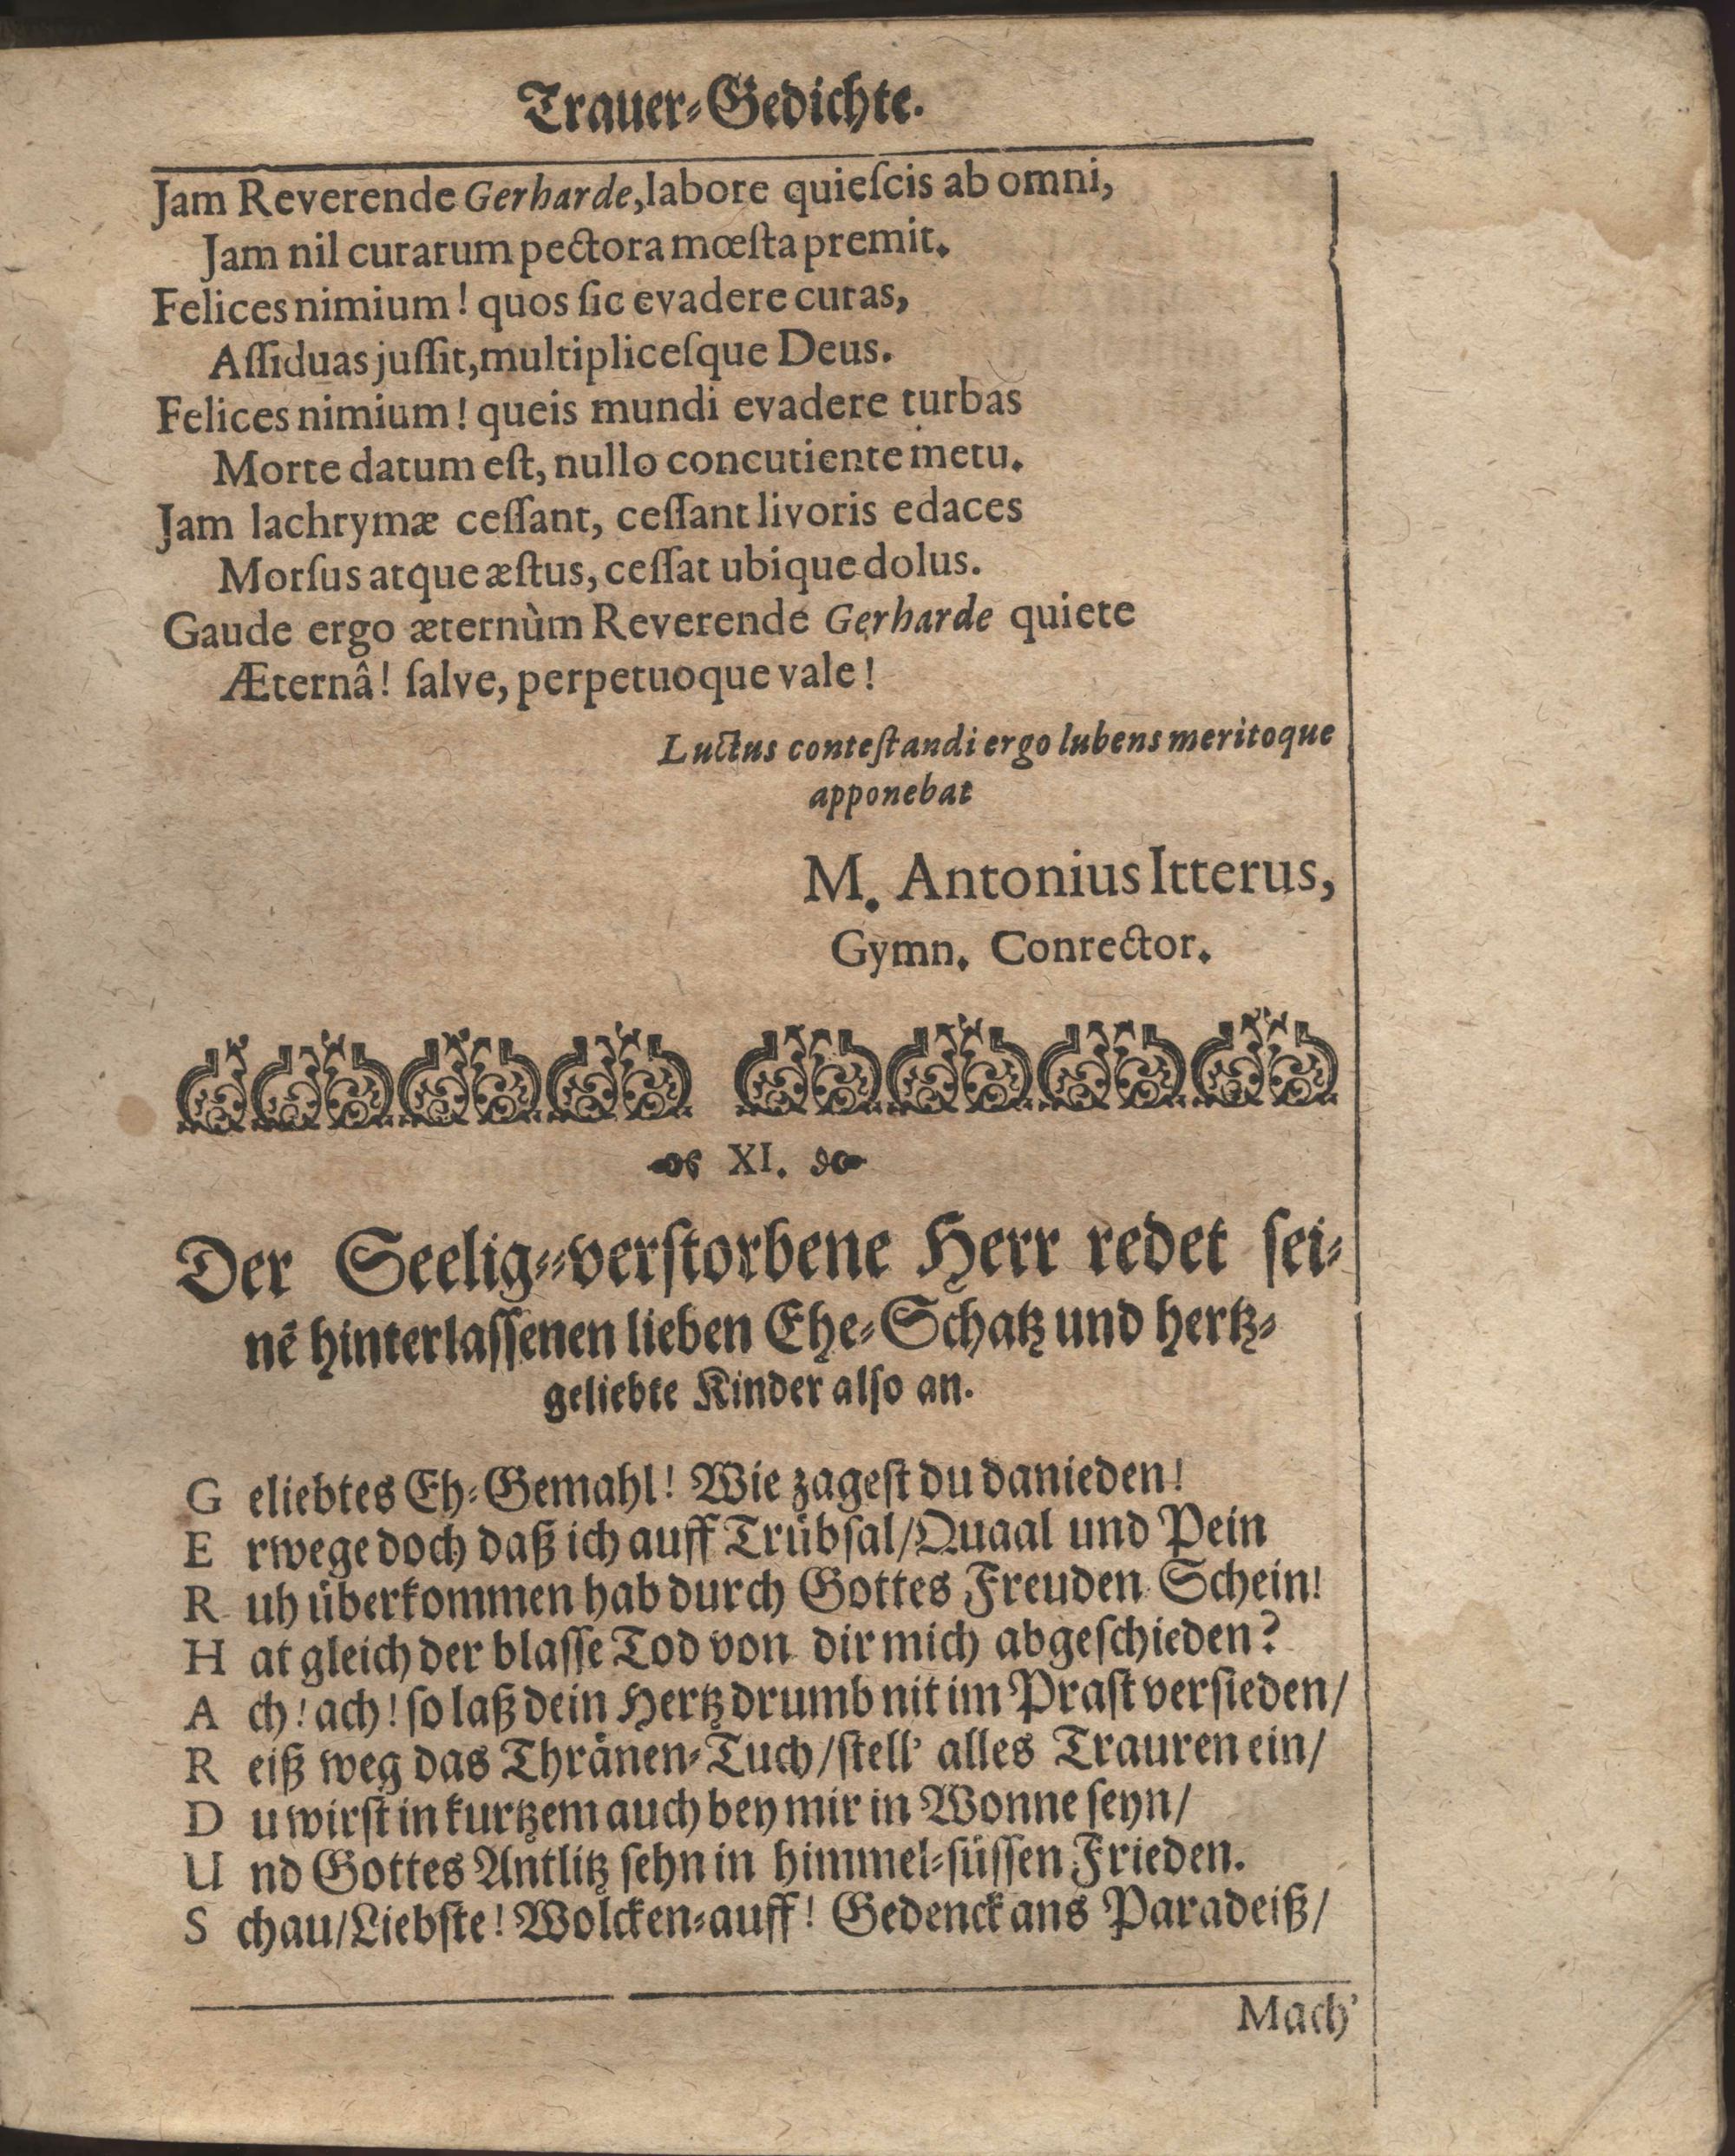 Trauer-Gedichte.
Jam Reverende Gerharde, labore quieſcis ab omni,
Jam nil curarum pectora mœſta premit.
Felices nimium! quos ſic evadere curas,
Aſſiduas juſſit, multipliceſque Deus.
Felices nimium! queis mundi evadere turbas
Morte datum eſt, nullo concutiente metu.
Jam lachrymæ ceſſant, ceſſant livoris edaces
Morſus atque æſtus, ceſſat ubique dolus.
Gaude ergo æternùm Reverende Gerharde quiete
Æternâ! ſalve, perpetuoque vale!
Luctus conteſtandi ergo lubens meritoque
apponebat
M. Antonius Itterus,
Gymn. Conrector.
XI.
Der Seelig-verſtorbene Herr redet ſei-
nē hinterlaſſenen lieben Ehe-Schatz und hertz-
geliebte Kinder alſo an.
G eliebtes Eh-Gemahl! Wie zageſt du danieden!
E rwege doch daß ich auff Truͤbſal/Quaal und Pein
R uh uͤberkommen hab durch Gottes Freuden Schein!
H at gleich der blaſſe Tod von dir mich abgeſchieden?
A ch! ach! ſo laß dein Hertz drumb nit im Praſt verſieden/
R eiß weg das Thraͤnen-Tuch/ſtell' alles Trauren ein/
D u wirſt in kurtzem auch bey mir in Wonne ſeyn/
U nd Gottes Antlitz ſehn in himmel-ſuͤſſen Frieden.
S chau/Liebſte! Wolcken-auff! Gedenck ans Paradeiß/
Mach'